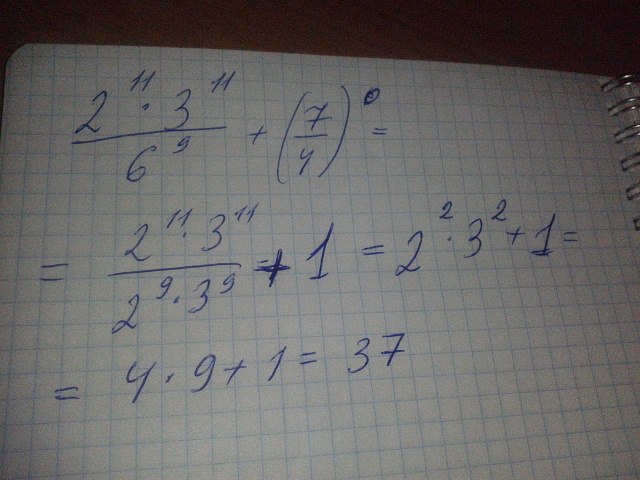 2¹¹ · 3¹¹ / 6⁹ + (7/4)⁰ =
= 2¹¹ · 3¹¹ / 2⁹ · 3⁹ + 1 = 2² · 3² + 1 =
= 4 · 9 + 1 = 37